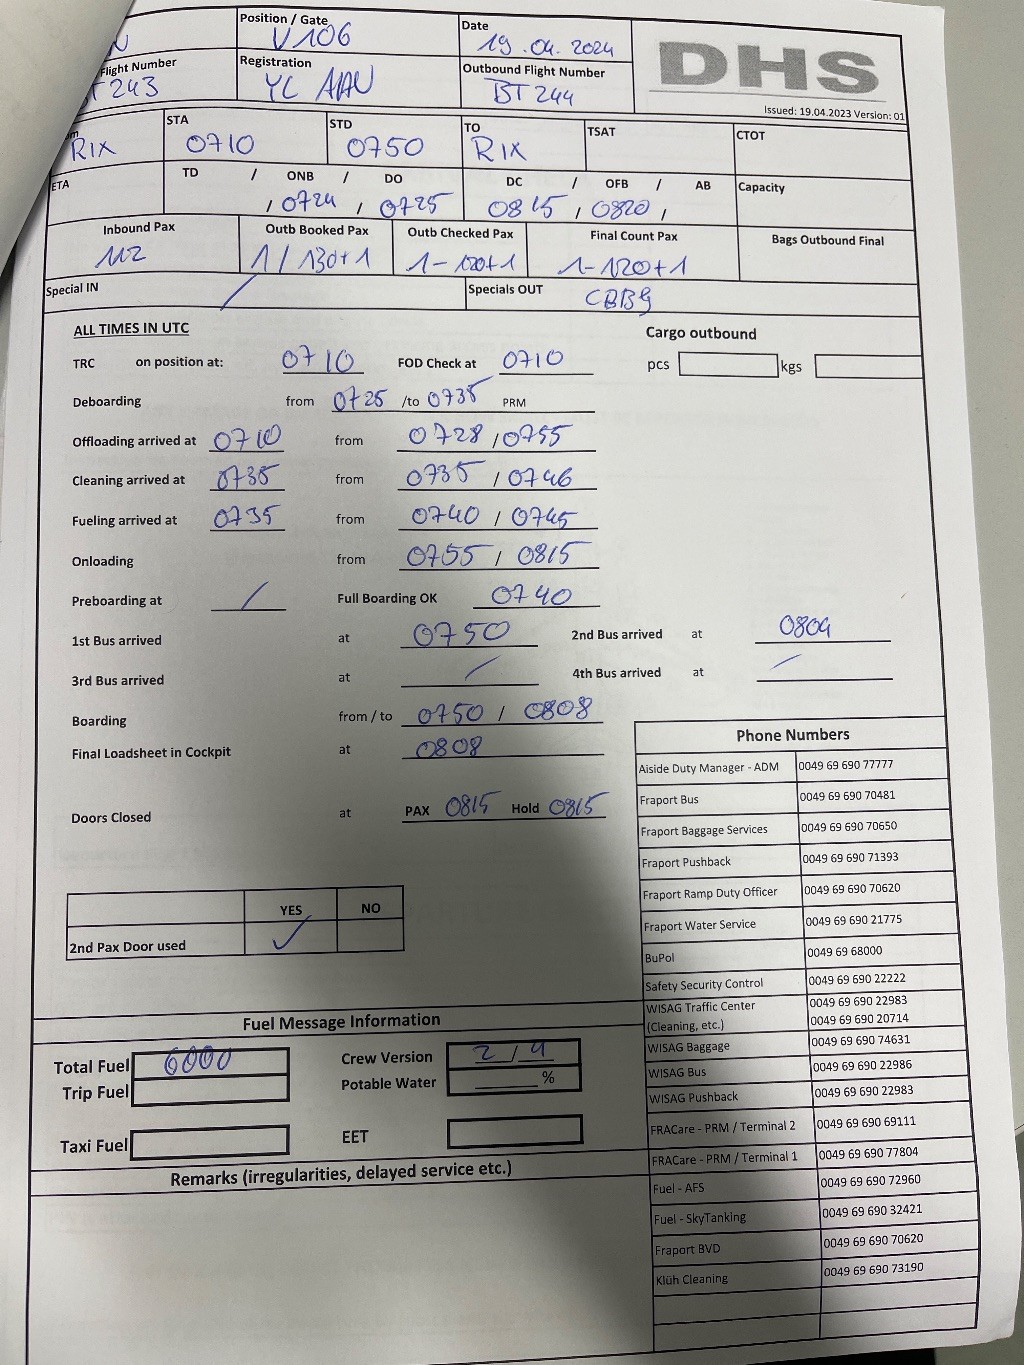 Position / Gate
V106
Date
19.04.2024
DHS
Issued: 19.04.2023 Version: 01
Flight Number
243
Registration
YL AAU
Outbound Flight Number
BT 244
RIX
STA
0710
STD
0750
TO
RIX
TSAT
CTOT
ETA
TD / ONB / DO
, 0724 , 0725
DC / OFB / AB
0815 , 0820 ,
Capacity
Inbound Pax
112
Outb Booked Pax
1/130+1
Outb Checked Pax
1-120+1
Final Count Pax
1-120+1
Bags Outbound Final
Special IN /
Specials OUT CBBG
ALL TIMES IN UTC
Cargo outbound
TRC on position at: 0710 FOD Check at 0710
pcs kgs
Deboarding from 0725 /to 0735 PRM
Offloading arrived at 0710 from 0728 / 0755
Cleaning arrived at 0735 from 0735 / 0746
Fueling arrived at 0735 from 0740 / 0745
Onloading from 0755 / 0815
Preboarding at / Full Boarding OK 0740
1st Bus arrived at 0750 2nd Bus arrived at 0804
3rd Bus arrived at / 4th Bus arrived at /
Boarding from / to 0750 / 0808
Final Loadsheet in Cockpit at 0808
Doors Closed at PAX 0815 Hold 0815
YES NO
2nd Pax Door used ✓
Phone Numbers
Aiside Duty Manager - ADM 0049 69 690 77777
Fraport Bus 0049 69 690 70481
Fraport Baggage Services 0049 69 690 70650
Fraport Pushback 0049 69 690 71393
Fraport Ramp Duty Officer 0049 69 690 70620
Fraport Water Service 0049 69 690 21775
BuPol 0049 69 68000
Safety Security Control 0049 69 690 22222
WISAG Traffic Center 0049 69 690 22983
(Cleaning, etc.) 0049 69 690 20714
WISAG Baggage 0049 69 690 74631
WISAG Bus 0049 69 690 22986
WISAG Pushback 0049 69 690 22983
FRACare - PRM / Terminal 2 0049 69 690 69111
FRACare - PRM / Terminal 1 0049 69 690 77804
Fuel - AFS 0049 69 690 72960
Fuel - SkyTanking 0049 69 690 32421
Fraport BVD 0049 69 690 70620
Klüh Cleaning 0049 69 690 73190
Fuel Message Information
Total Fuel 6000 Crew Version 2 / 4
Trip Fuel Potable Water %
Taxi Fuel EET
Remarks (irregularities, delayed service etc.)